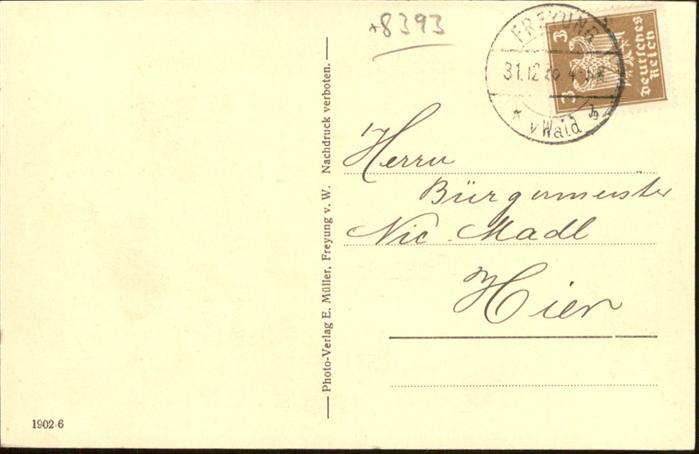 *8393
FREYUNG
31.12.26. 4-5 N
* v Wald b
3 3
Deutsches
Reich
Herrn
Bürgermeister
Nic. Madl
Hier
Photo-Verlag E. Müller, Freyung v. W. Nachdruck verboten.
1902 6